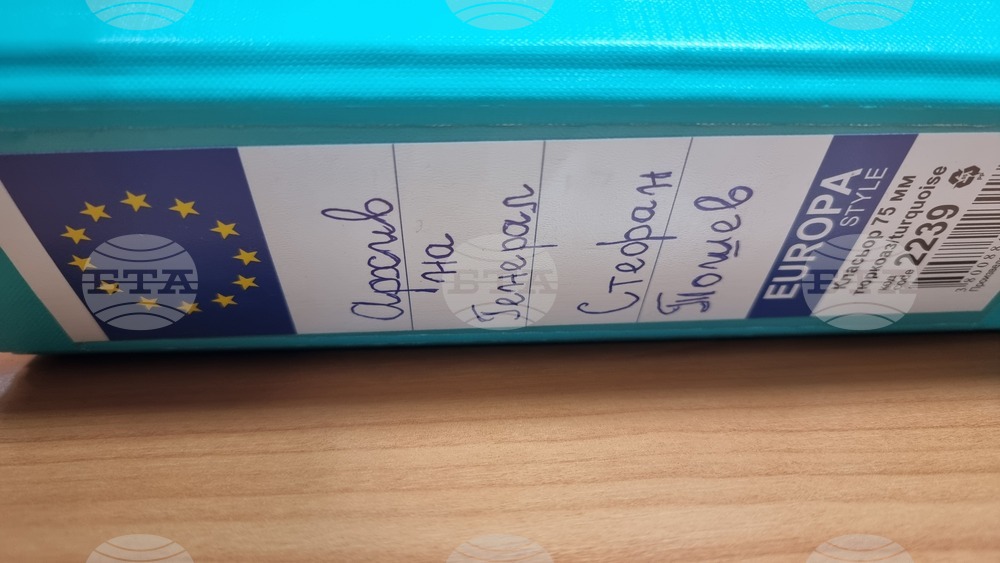 Архив
на
Генерал
Стефан
Тошев
EUROPA
STYLE
Класьор 75 мм
тюркоаз/turquoise
2239
БТА
БТА
БТА